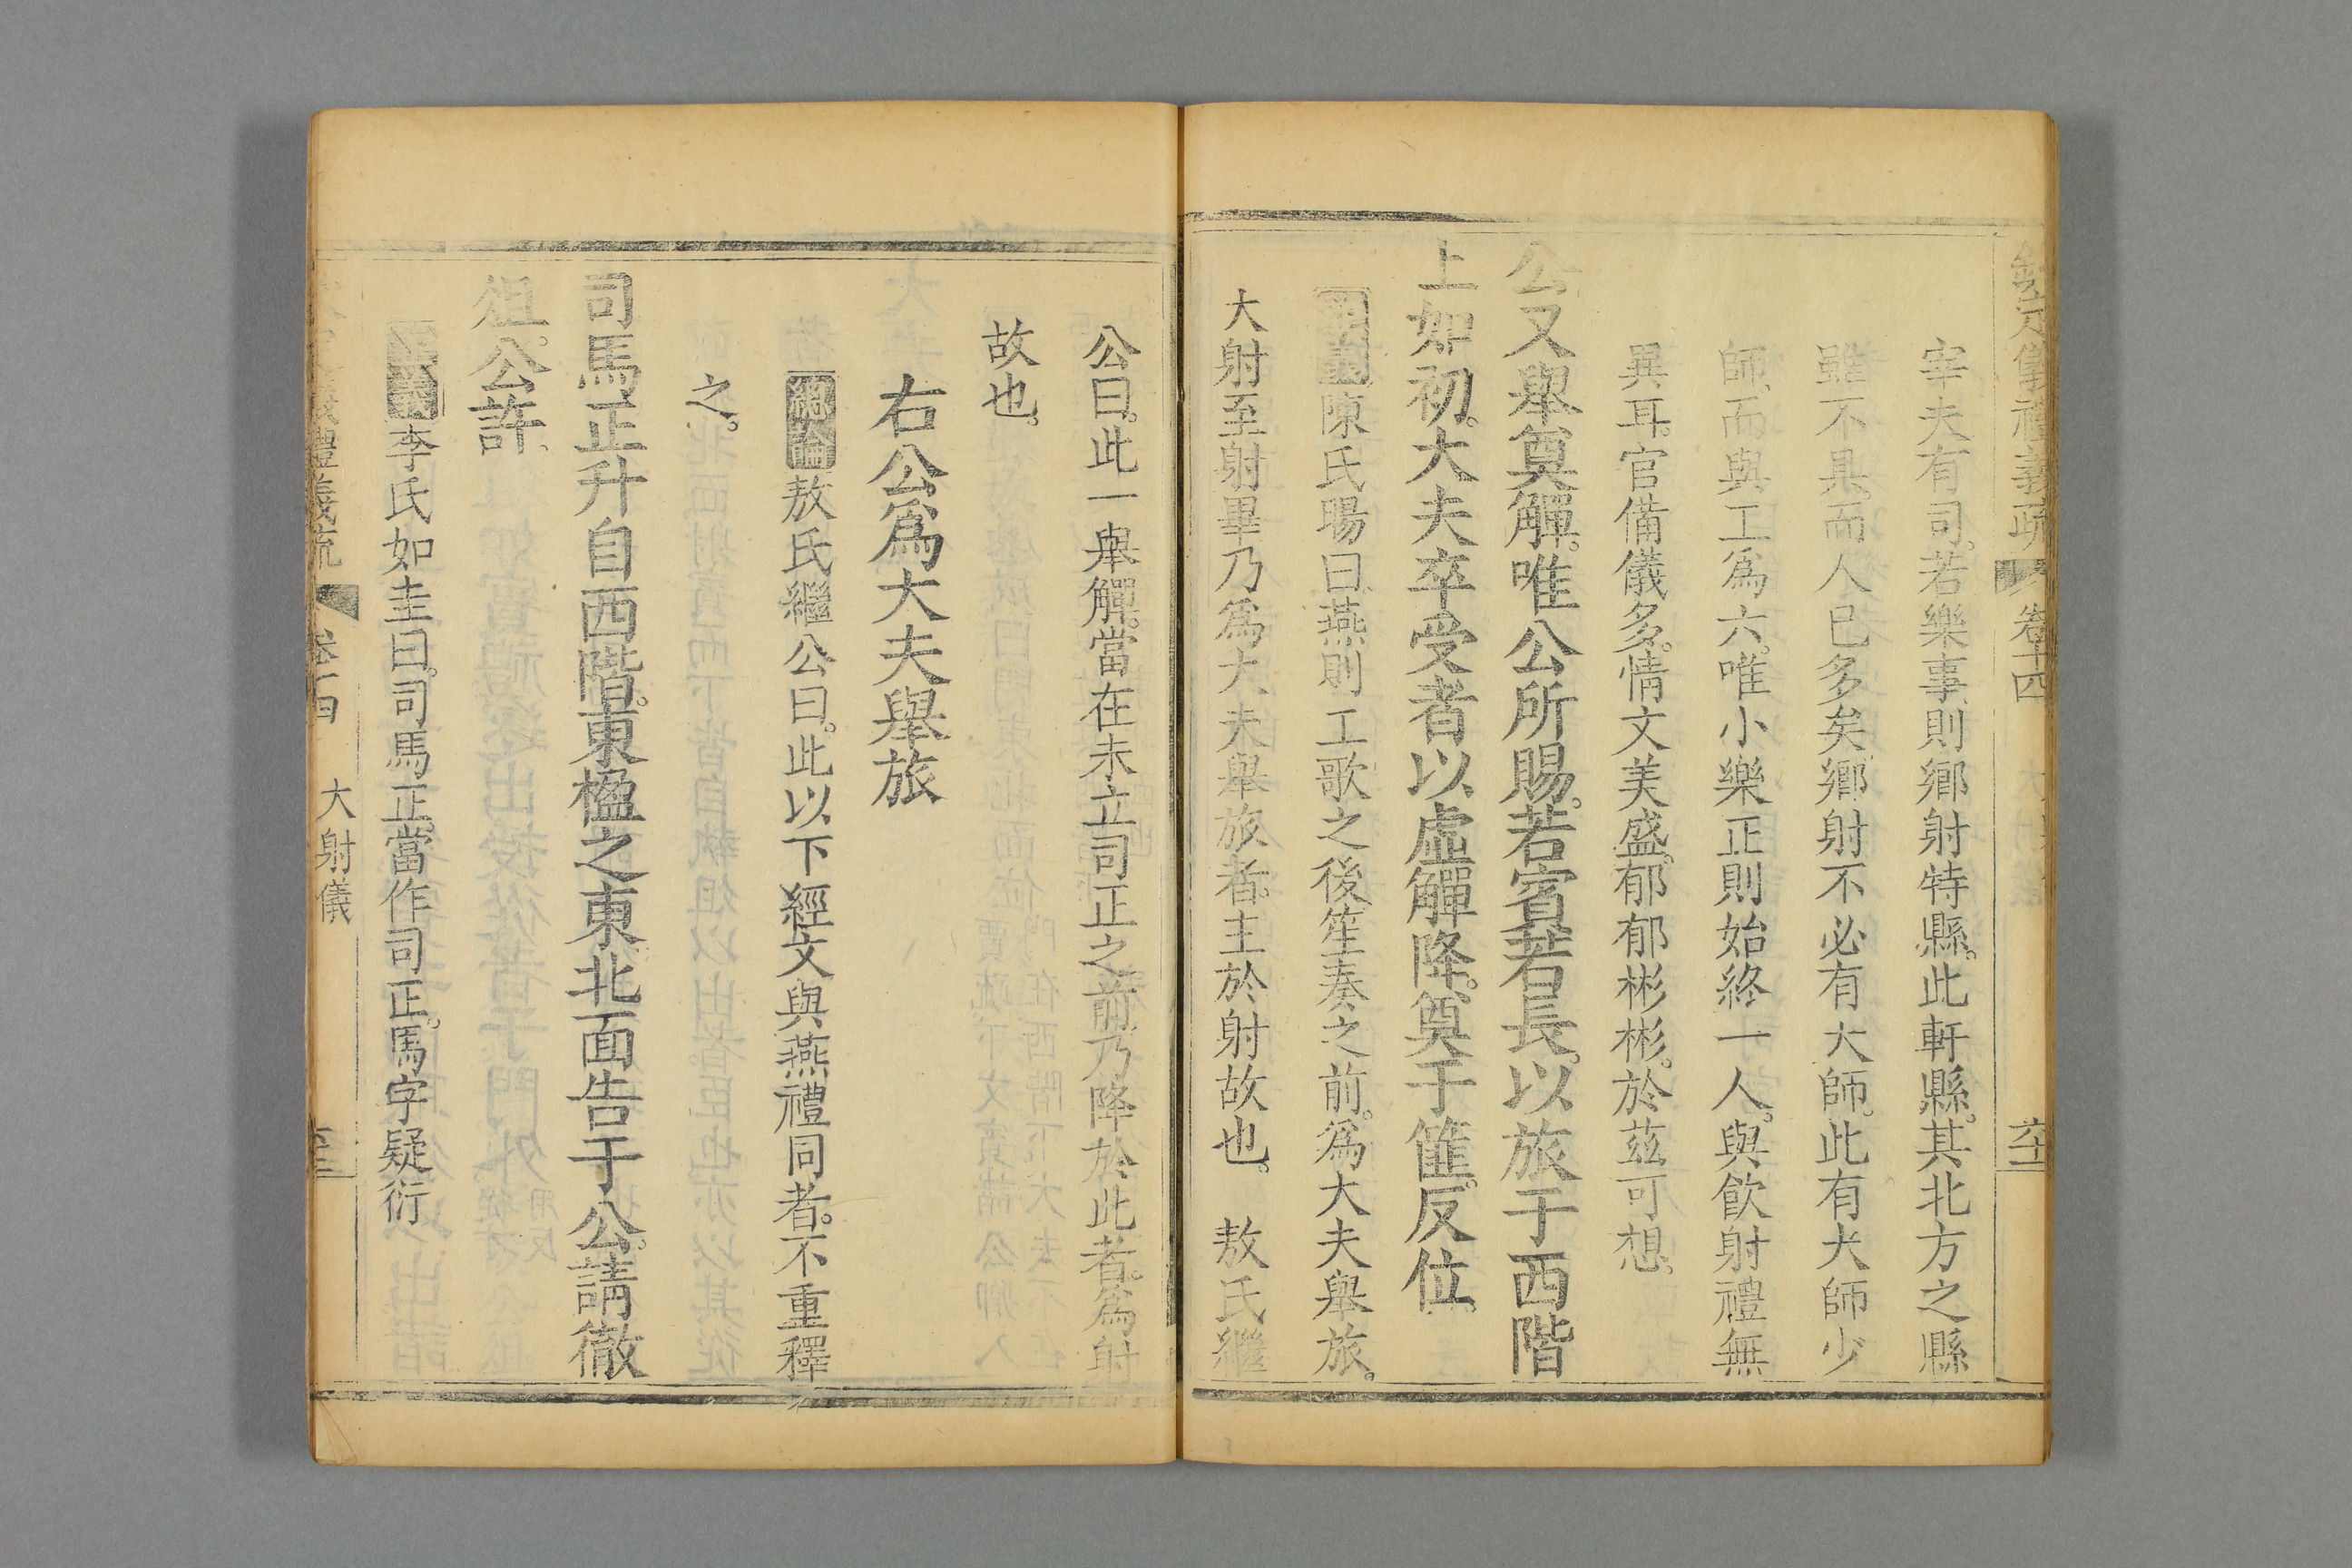 欽定儀禮義疏 卷十四
宰夫有司。若樂事。則鄉射特縣。此軒縣。其北方之縣
雖不具。而人已多矣。鄉射不必有大師。此有大師少
師。而與工爲六。唯小樂正則始終一人。與飲射禮無
異耳。官備儀多。情文美盛。郁郁彬彬。於茲可想。
公又舉奠觶。唯公所賜。若賓若長。以旅于西階
上如初。大夫卒受者以虛觶降。奠于篚。反位。
陳氏暘曰。燕則工歌之後。笙奏之前。爲大夫舉旅。
大射至射畢乃爲大夫舉旅者。主於射故也。 敖氏繼
公曰。此一舉觶。當在未立司正之前。乃降於此者。爲射
故也。
右公爲大夫舉旅
總論敖氏繼公曰。此以下經文與燕禮同者。不重釋
之。
司馬正升自西階。東楹之東。北面告于公。請徹
俎。公許。
李氏如圭曰。司馬正。當作司正。馬字疑衍
儀禮義疏 卷十四 大射儀